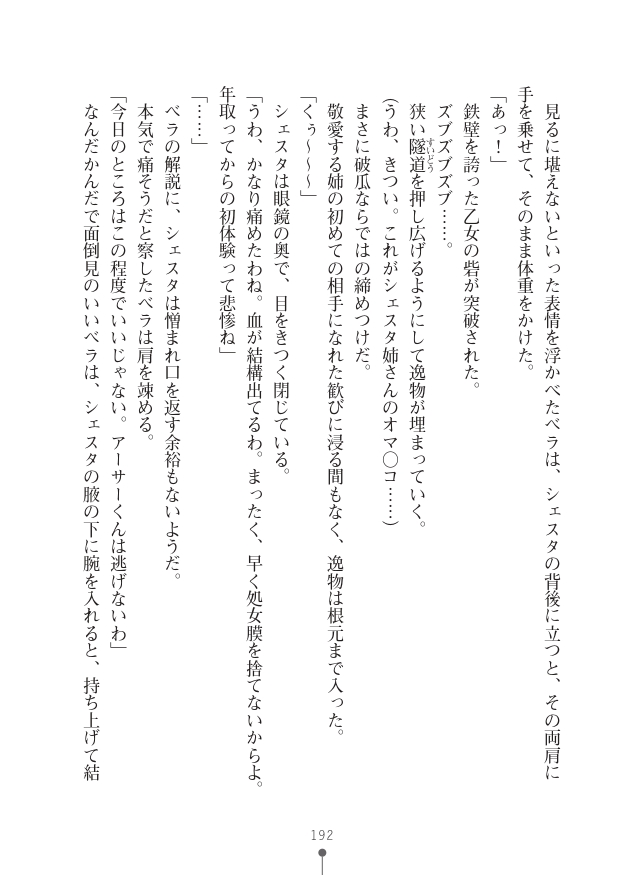 見るに堪えないといった表情を浮かべたベラは、シェスタの背後に立つと、その両肩に
手を乗せて、そのまま体重をかけた。
「あっ！」
鉄壁を誇った乙女の砦が突破された。
ズブズブズブ……。
狭い隧道すいどうを押し広げるようにして逸物が埋まっていく。
（うわ、きつい。これがシェスタ姉さんのオマ〇コ……）
まさに破瓜ならではの締めつけだ。
敬愛する姉の初めての相手になれた歓びに浸る間もなく、逸物は根元まで入った。
「くぅ～～～」
シェスタは眼鏡の奥で、目をきつく閉じている。
「うわ、かなり痛めたわね。血が結構出てるわ。まったく、早く処女膜を捨てないからよ。
年取ってからの初体験って悲惨ね」
「……」
ベラの解説に、シェスタは憎まれ口を返す余裕もないようだ。
本気で痛そうだと察したベラは肩を竦める。
「今日のところはこの程度でいいじゃない。アーサーくんは逃げないわ」
なんだかんだで面倒見のいいベラは、シェスタの腋の下に腕を入れると、持ち上げて結
192